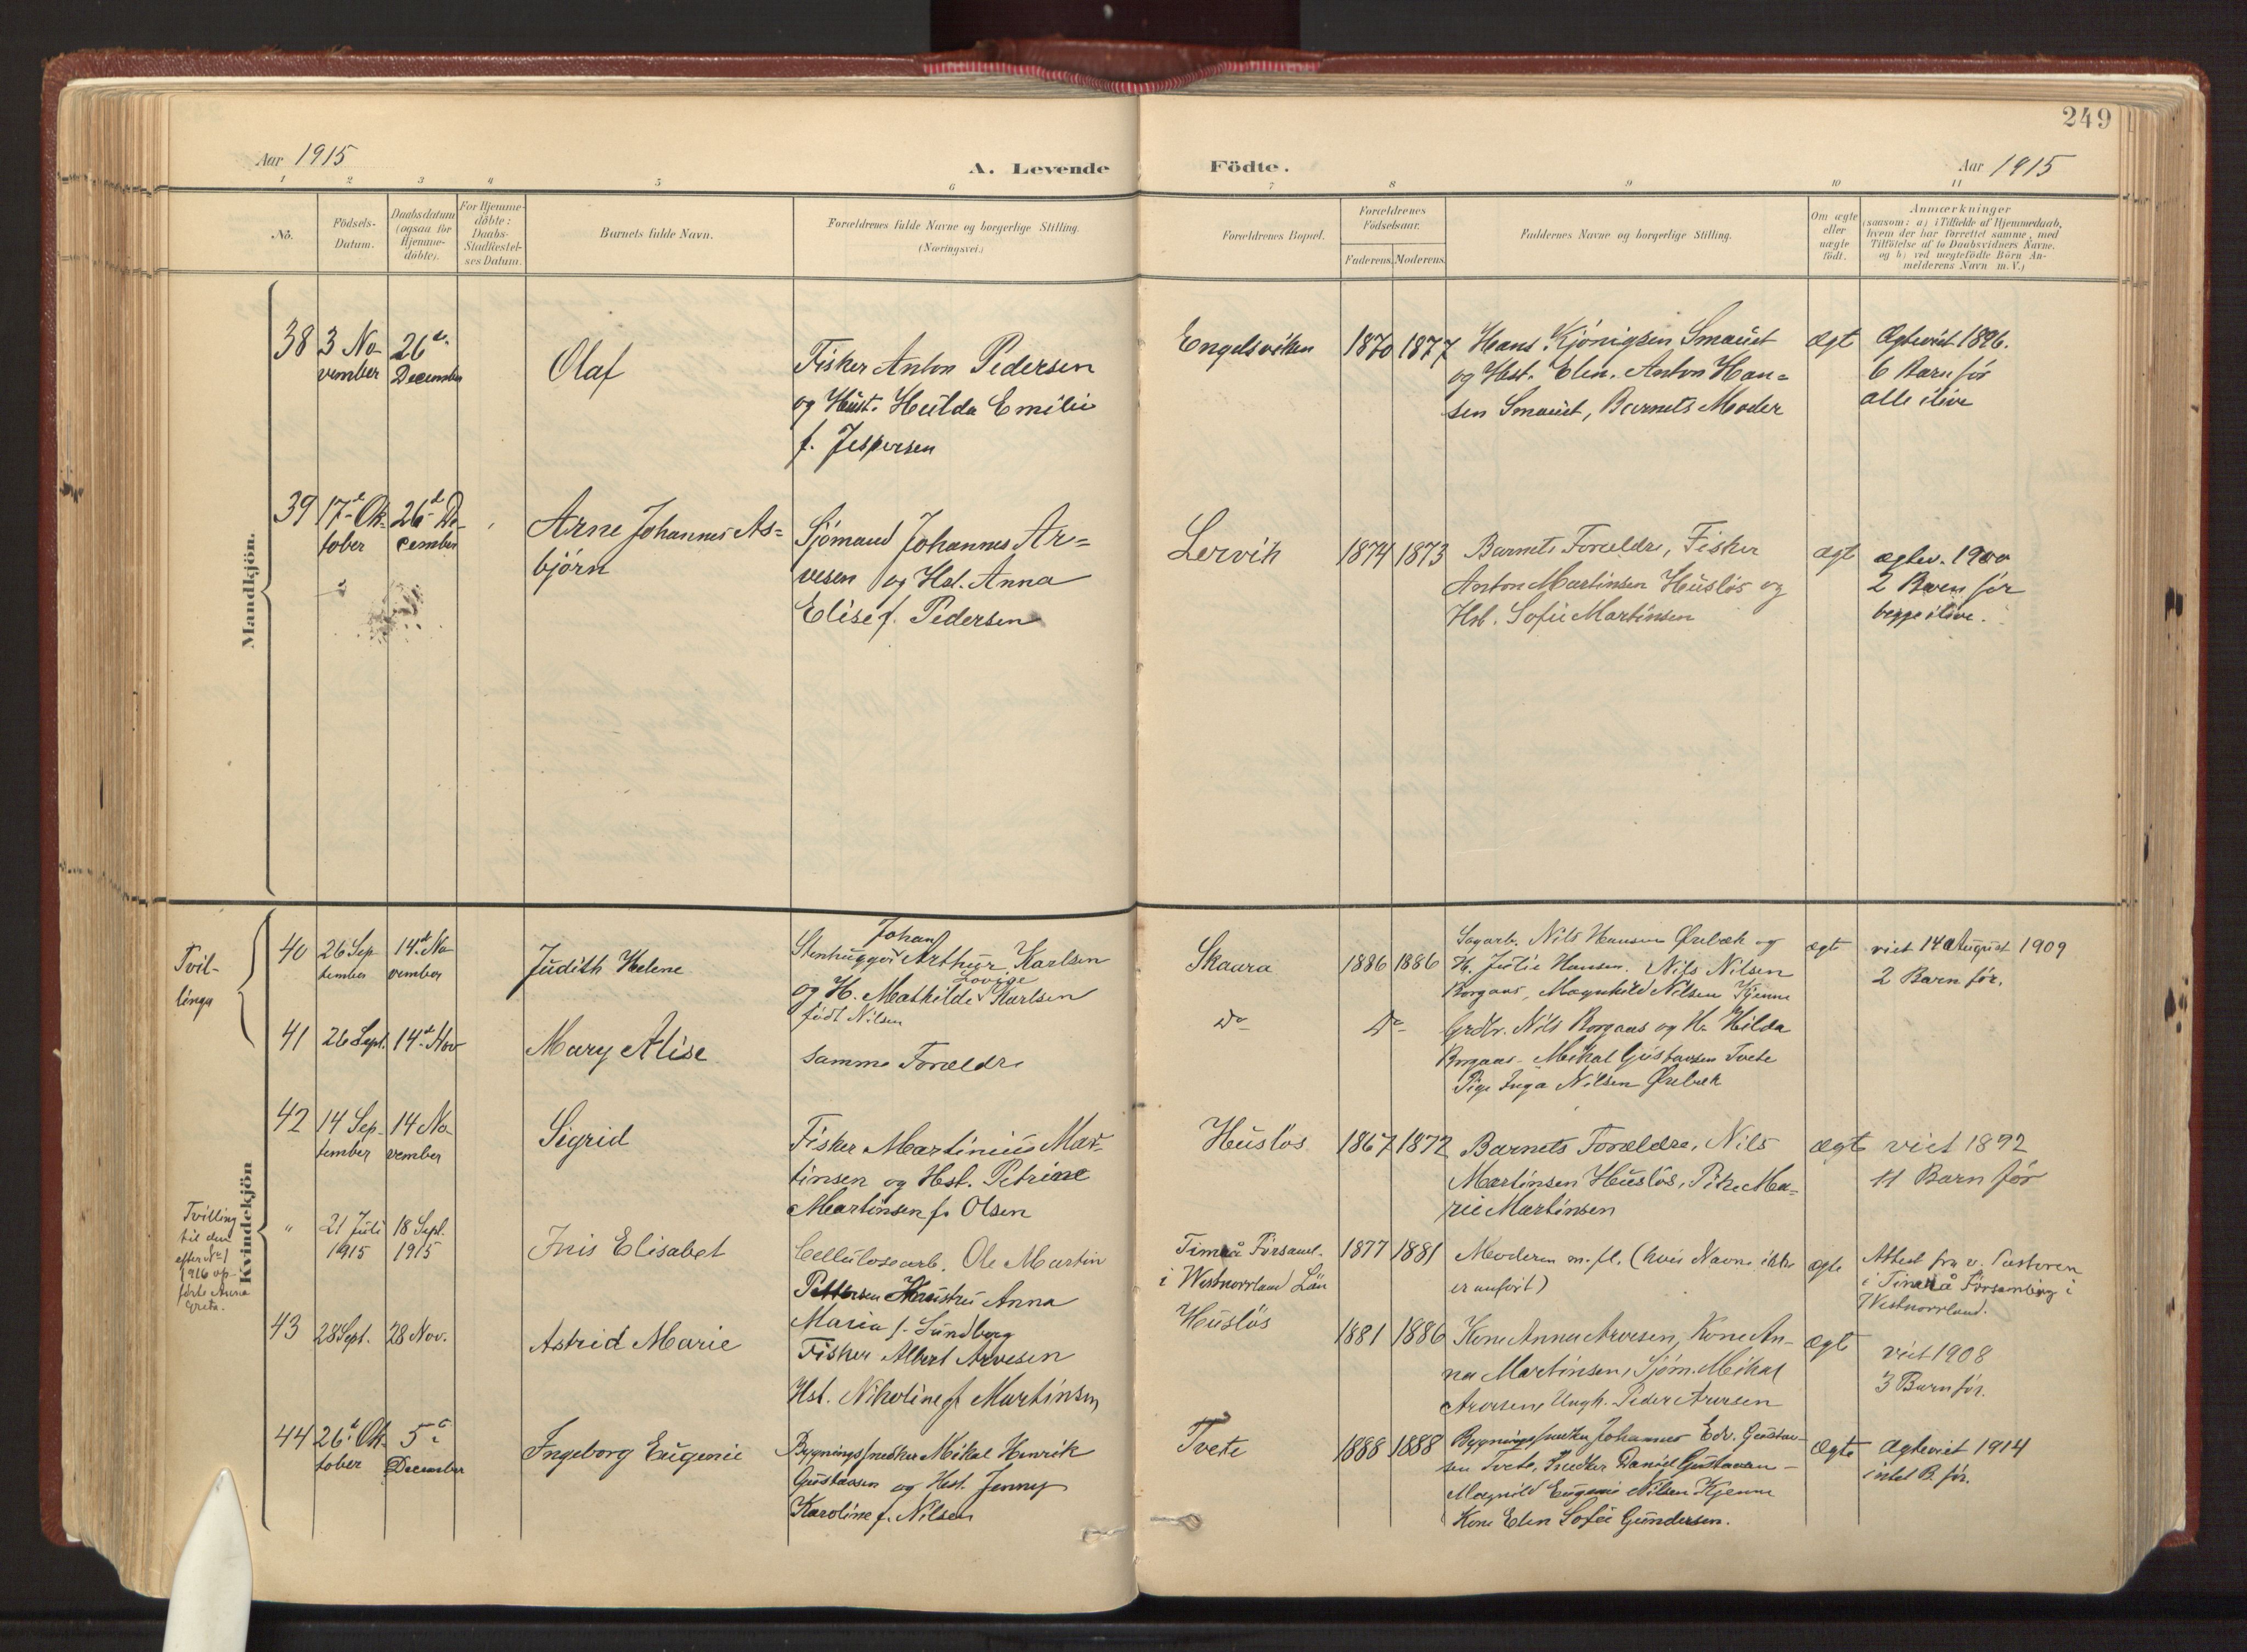 249
Aar 1915
A. Levende Födte.
Aar 1915
1 2 3 4 5 6 7 8 9 10 11
Nö.
Födsels-
Datum.
Daabsdatum
(ogsaa for
Hjemme-
döbte).
For Hjemme-
döbte:
Daabs-
Stadfæstel-
ses Datum.
Barnets fulde Navn.
Forældrenes fulde Navne og borgerlige Stilling.
(Næringsvei.)
Forældrenes Bopæl.
Forældrenes
Födselsaar.
Faderens. Moderens.
Faddernes Navne og borgerlige Stilling.
Om ægte
eller
uægte
födt.
Anmærkninger
(saasom: a) i Tilfælde af Hjemmedaab,
hvem der har forrettet samme, med
Tilföielse af to Daabsvidners Navne.
og b) ved uægtefödte Börn An-
melderens Navn m. V.)
Mandkjön.
38
3 No-
vember
26de
December
Olaf
Fisker Anton Pedersen
og Hust. Hulda Emilie
f. Jespersen
Engelsviken
1870 1877
Hans Kjönigsen Smauet
og Hst. Elen. Anton Han=
sen Smauet, Barnets Moder
ægt
Ægteviet 1896.
6 Barn før
alle ilive
39
17de Ok-
tober
26de De-
cember
Arne Johannes As=
bjørn
Sjømand Johannes Ar=
vesen og Hst. Anna
Elise f. Pedersen
Lervik
1874 1873
Barnets Forældre, Fisker
Anton Martinsen Husløs og
Hst. Sofie Martinsen
ægt
ægtev. 1900
2 Barn før
begge ilive.
Kvindekjön
Tvil-
linga
40
26 Sep-
tember
14de No-
vember
Judith Helene
Johan
Stenhugger Arthur Karlsen
Lovise
og H. Mathilde Karlsen
født Nilsen
Skaara
1886 1886
Sagarb. Nils Hansen Ørebæk og
H. Julie Hansen. Nils Nilsen
Borgaas, Magnhild Nilsen Kjenne
ægt
viet 14 August 1909
2 Barn før.
41
26 Sept.
14de Nov
Mary Alise
Samme Forældre
Do
Do
Grdbr. Nils Borgaas og H. Hilda
Borgaas. Mikal Gustavsen Tvete
Pige Inga Nilsen Ørebæk
42
14 Sep-
tember
14 No-
vember
Sigrid
Fisker Martinius Mar-
tinsen og Hst. Petrine
Martinsen f. Olsen
Husløs
1867 1872
Barnets Forældre, Nils
Martinsen Husløs, Pike Ma=
rie Martinsen
ægt
viet 1892
11 Barn før
Tvilling
til den
efter No 1
1916 op-
førte Anna
Greta.
"
21 Juli
1915
18 Sept.
1915
Iris Elisabet
Cellulosearb. Ole Martin
Pettersen Hustru Anna
Maria f. Sundberg
Timrå Församl.
i Westnorrland Län
1877 1881
Moderen m. fl. (hvis Navne ikke
er anført)
ægte
Attest fra v. Pastoren
i Timrå Församling i
Westnorrland.
43
28 Sept.
28 Nov.
Astrid Marie
Fisker Albert Arvesen
Hst. Nikoline f. Martinsen
Husløs
1881 1886
Kone Anna Arvesen, Kone An-
na Martinsen, Sjøm. Mikal
Arvesen, Ungk. Peder Arvesen
ægt
viet 1908
3 Barn før.
44
26de Ok-
tober
5te
December
Ingeborg Eugenie
Bygningssnedker Mikal Henrik
Gustavsen og Hst. Jenny
Karoline f. Nilsen
Tvete
1888 1888
Bygningssnedker Johannes Edv. Gustav-
sen Tvete, Snedker Daniel Gustavsen -
Magnild Eugenie Nilsen Kjenne
Kone Elen Sofie Gundersen.
Ægte
Ægteviet 1914
intet B. før.